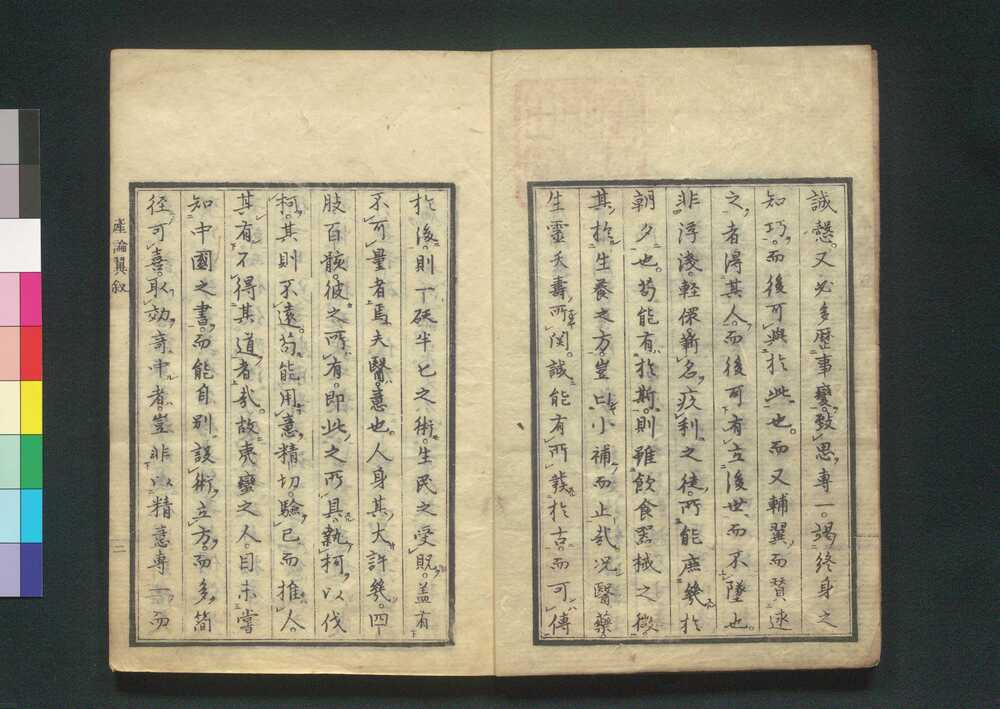 誠愨又必多歴事變致思專一竭終身之
知巧而後可與於此也而又輔翼而賛述
之者得其人而後可有立後世而不墜也
非浮淺輕儇新名疚利之徒所能庶幾於
朝夕也苟能有於斯則雖飲食器械之微
其於生養之方豈止小補而止哉況醫藥
生靈夭壽所関誠能有所發於古而可傳
於後則一砭半匕之術生民之受貺盖有
不可量者焉夫醫意也人身其大許幾四
肢百骸彼之所有即此之所具執柯以伐
柯其則不遠苟能用意精切驗己而推人
其有不得其道者哉故夷蠻之人目未嘗
知中國之書而能自別設術立方而多簡
徑可喜取効奇中者豈非以精意專一而
產論翼叙
二